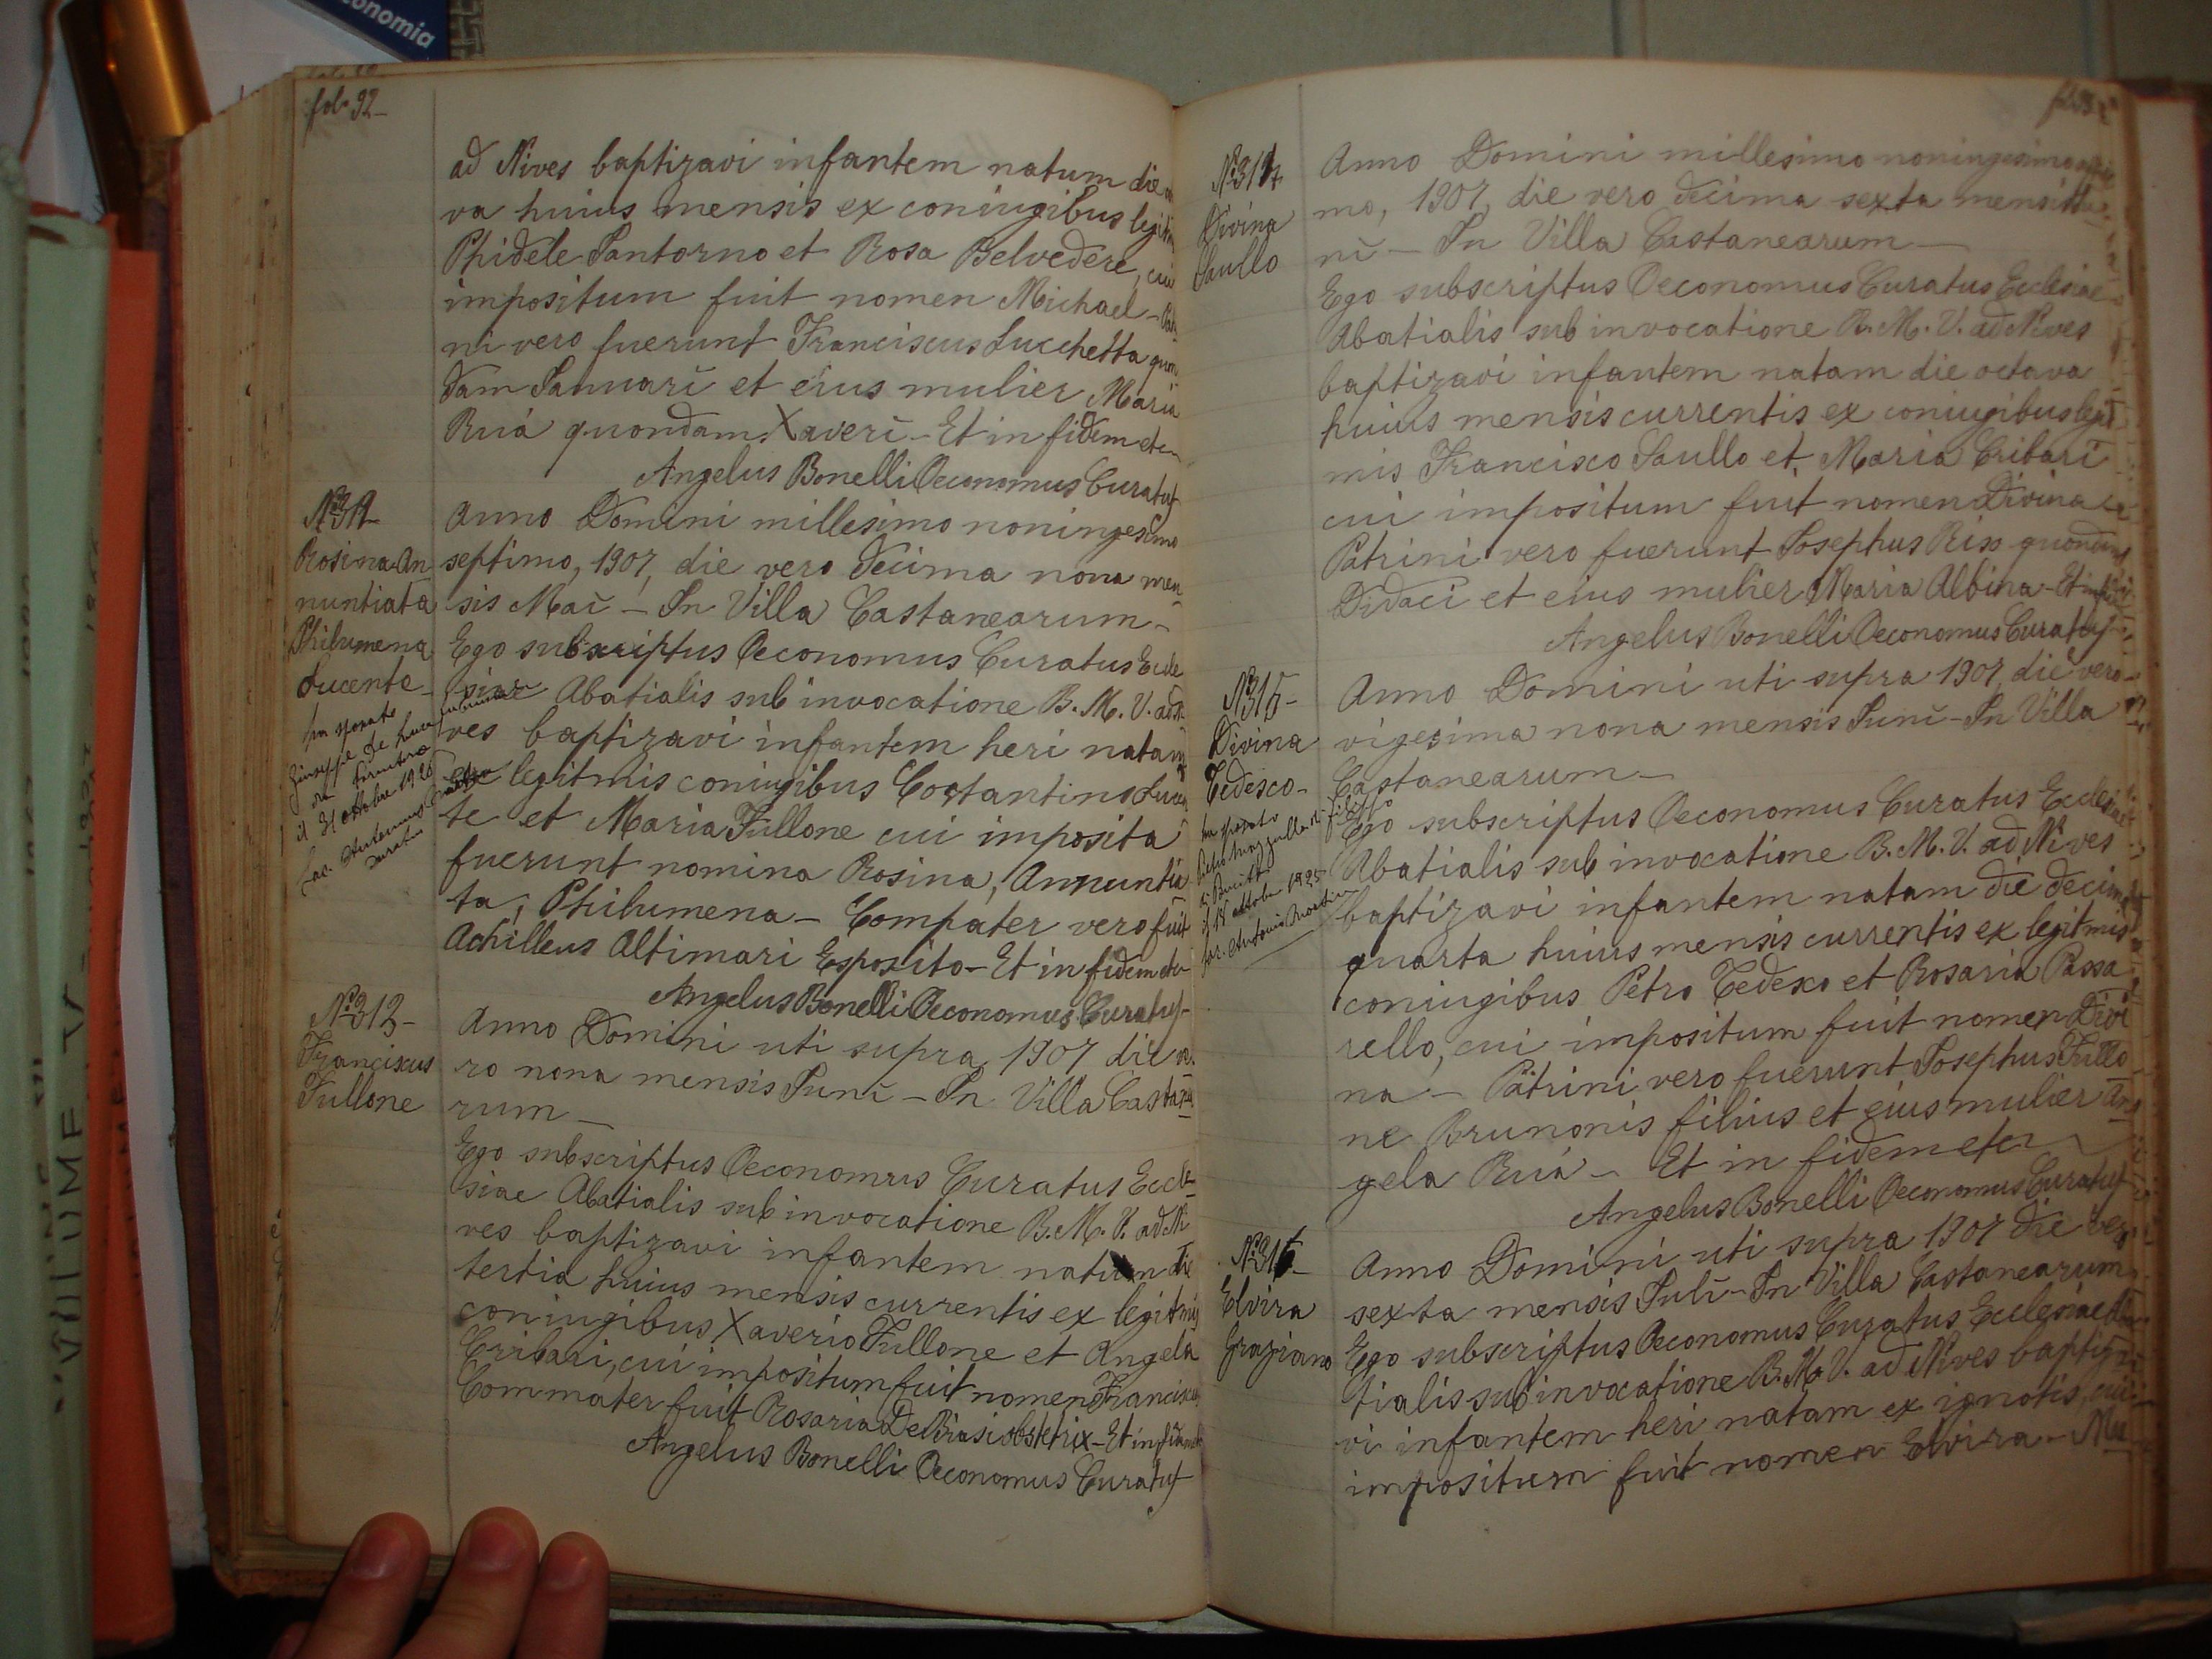 onomia
fol. 92
ad Nives baptizavi infantem natum die
va huius mensis ex coniugibus legiti
Phidele Santorno et Rosa Belvedere, cui
impositum fuit nomen Michael - Patri
ni vero fuerunt Franciscus Lucchetta quon
dam Januarĩ et eius mulier Maria
Ruà quondam Xaverĩ - Et in fidem etc
Angelus Bonelli Oeconomus Curatus
Rosina An
nuntiata
Philumena
Lucente
ha sposato
Giuseppe De Luca
il 31 ottobre 1926
Anno Domini millesimo noningesimo
septimo, 1907, die vero decima nona men
sis Maĩ - In Villa Castanearum -
Ego subscriptus Oeconomus Curatus Eccle
siae Abatialis sub invocatione B. M. V. ad Ni
ves baptizavi infantem heri natam
ex legitmis coniugibus Costantino Lucen
te et Maria Fullone cui imposita
fuerunt nomina Rosina, Annuntia
ta, Philumena - Compater vero fuit
Achilleus Altimari Esposito - Et in fidem etc
Angelus Bonelli Oeconomus Curatus
Nº 313 -
Franciscus
Fullone
Anno Domini uti supra, 1907 die ve
ro nona mensis Junĩ - In Villa Castanea
rum -
Ego subscriptus Oeconomus Curatus Eccle
siae Abatialis sub invocatione B. M. V. ad Ni
ves baptizavi infantem natum die
tertia huius mensis currentis ex legitmis
coniugibus Xaverio Fullone et Angela
Cribari, cui impositum fuit nomen Franciscus
Commater fuit Rosaria De Biasi obstetrix - Et in fidem etc
Angelus Bonelli Oeconomus Curatus
Nº 314
Divina
Saullo
Anno Domini millesimo noningesimo septi
mo, 1907, die vero decima sexta mensis Ju
nĩ - In Villa Castanearum -
Ego subscriptus Oeconomus Curatus Ecclesiae
Abatialis sub invocatione B. M. V. ad Nives
baptizavi infantem natam die octava
huius mensis currentis ex coniugibus legit
mis Francisco Saullo et Maria Cribari
cui impositum fuit nomen Divina
Patrini vero fuerunt Josephus Riso quondam
Didaci et eius mulier Maria Albina - Et in fidem
Angelus Bonelli Oeconomus Curatus
Nº 315 -
Divina
Tedesco -
ha sposato
il 18 ottobre 1925
Anno Domini uti supra 1907, die vero
vigesima nona mensis Junĩ - In Villa
Castanearum -
Ego subscriptus Oeconomus Curatus Ecclesiae
Abatialis sub invocatione B. M. V. ad Nives
baptizavi infantem natam die decima
quarta huius mensis currentis ex legitmis
coniugibus Petro Tedesco et Rosaria Passa
rello, cui impositum fuit nomen Divi
na - Patrini vero fuerunt Josephus Fullo
ne Brunonis filius et eius mulier An
gela Ruà - Et in fidem etc
Angelus Bonelli Oeconomus Curatus
Nº 316 -
Elvira
Graziano
Anno Domini uti supra 1907 die vero
sexta mensis Julĩ - In Villa Castanearum
Ego subscriptus Oeconomus Curatus Ecclesiae Aba
tialis sub invocatione B. M. V. ad Nives baptiza
vi infantem heri natam ex ignotis, cui
impositum fuit nomen Elvira - Mu